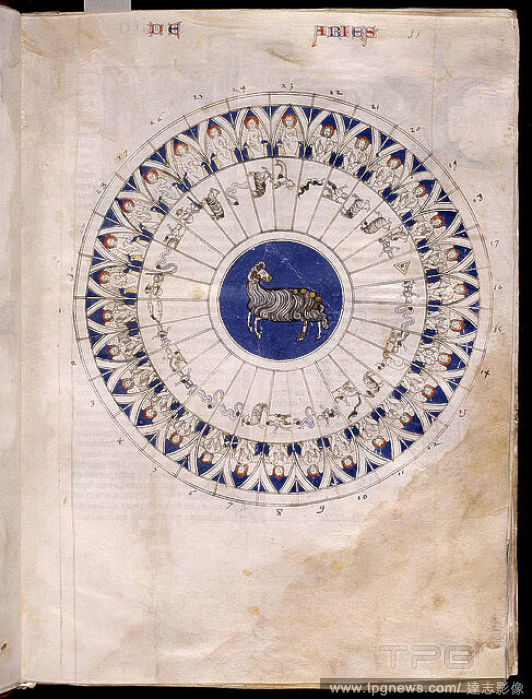 DE ARIES
23
24 22
21
26 20
19
18
17
2
15
3 14
4 13
5
6 10
7 8 9
TPG
www.tpgnews.com/達志影像